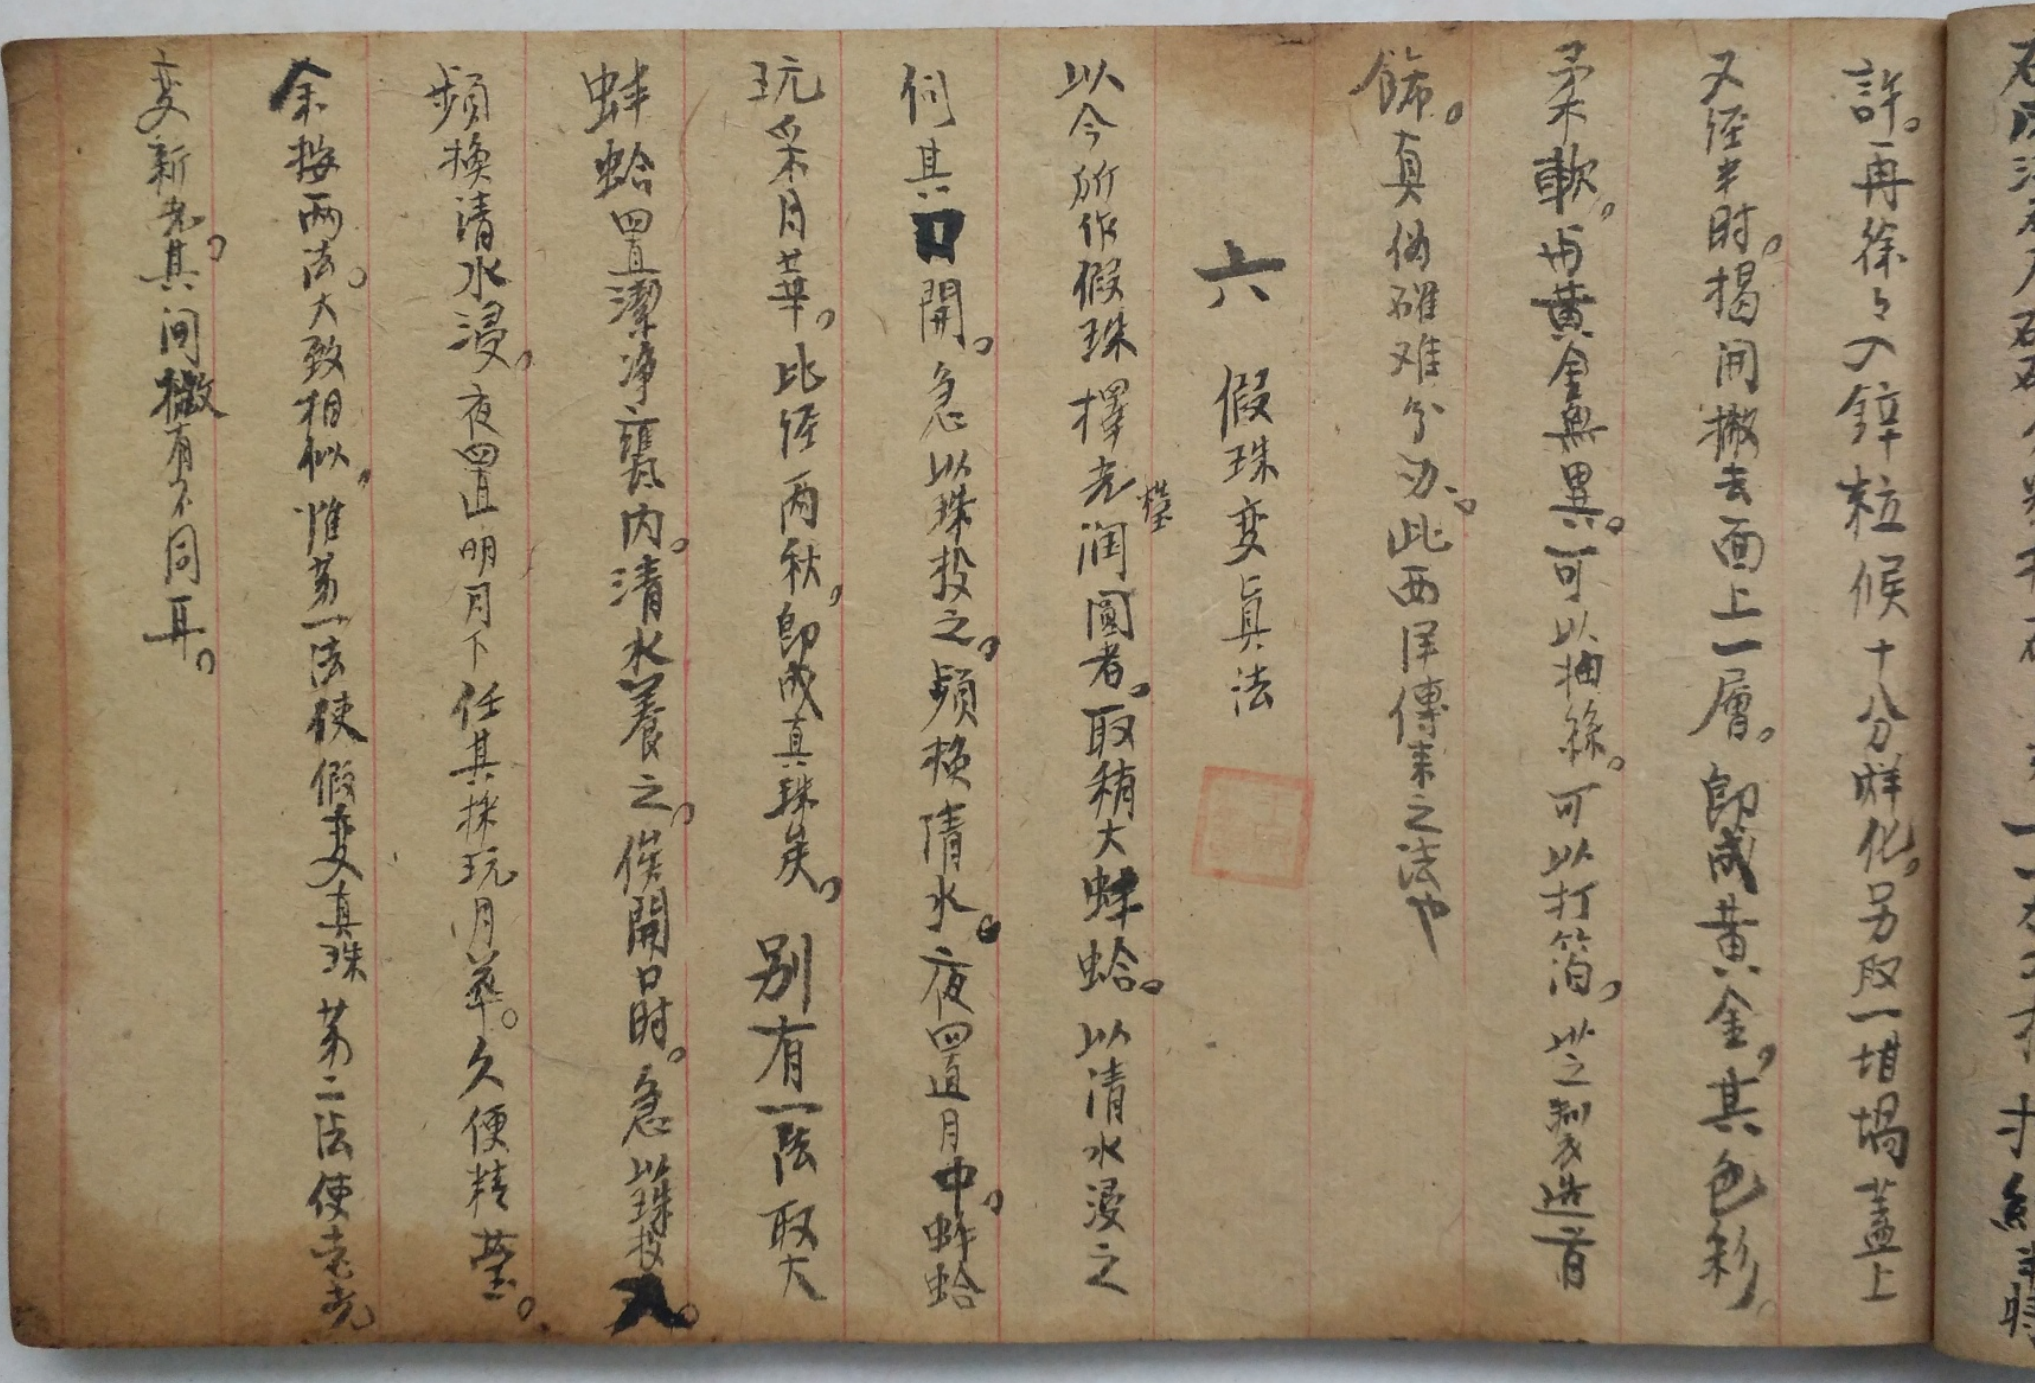 許。再徐々入鋅粒候十分烊化。另取一堝蓋上
又经半时。揭间撇去面上一層。即成黃金，其色彩
柔軟。与黃金無異。可以抽絲。可以打箔。以之製造首
飾。真偽確难分办。此西洋傳来之法也
六 假珠变眞法
以今所作假珠擇光瑩润圓者。取稍大蚌蛤。以清水浸之
伺其口開。急以珠投之。頻换清水。夜置月中。蚌蛤
玩采月華。比经两秋，即成真珠矣。别有一法取大
蚌蛤置潔净甕内。清水養之。俟開口时。急以珠投入。
頻換清水浸。夜置明月下任其採玩月華。久便精瑩。
余按两法。大致相似，惟苐一法使假变真珠苐二法使老光
变新光。其间微有不同耳。